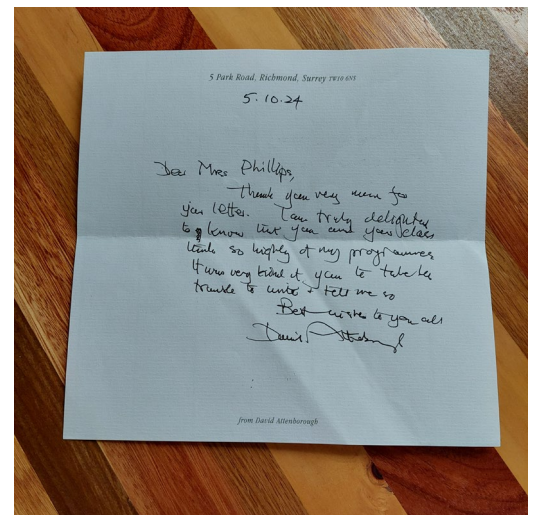 5 Park Road, Richmond, Surrey TW10 6NS
5.10.24
Dear Mrs Phillips,
Thank you very much for
your letter. I am truly delighted
to know that you and your class
think so highly of my programmes
It was very kind of you to take the
trouble to write & tell me so
Best wishes to you all
David Attenborough
from David Attenborough